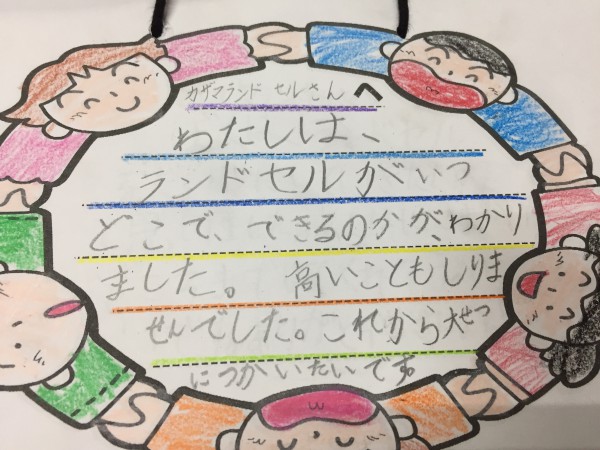 カザマランドセルさんへ
わたしは、
ランドセルがいつ
どこで、できるのかが、わかり
ました。 高いこともしりま
せんでした。これから大せつ
につかいたいです。